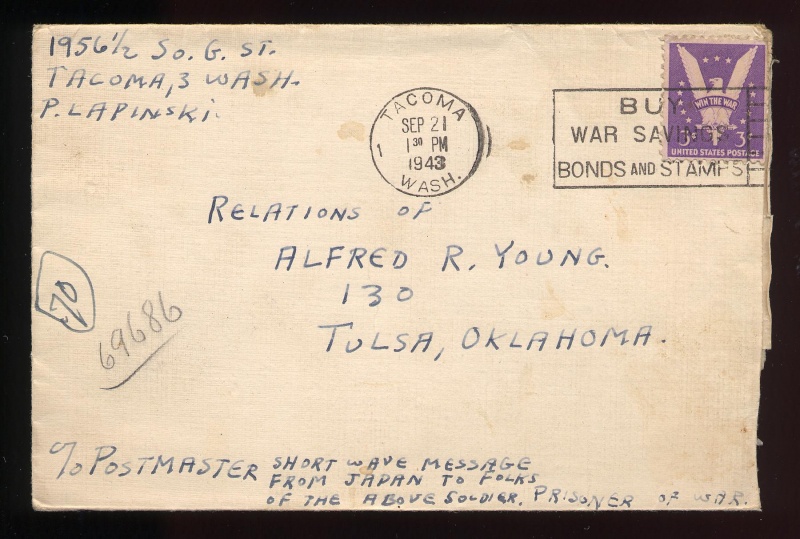 1956 1/2 SO. G. ST.
TACOMA, 3 WASH.
P. LAPINSKI.
TACOMA
SEP 21
1 30 PM
1943
WASH.
1
BUY
WAR SAVINGS
BONDS AND STAMPS
WIN THE WAR
3
UNITED STATES POSTAGE
RELATIONS OF
ALFRED R. YOUNG.
130
TULSA, OKLAHOMA.
69686
c/o POSTMASTER
SHORT WAVE MESSAGE
FROM JAPAN TO FOLKS
OF THE ABOVE SOLDIER. PRISONER OF WAR.